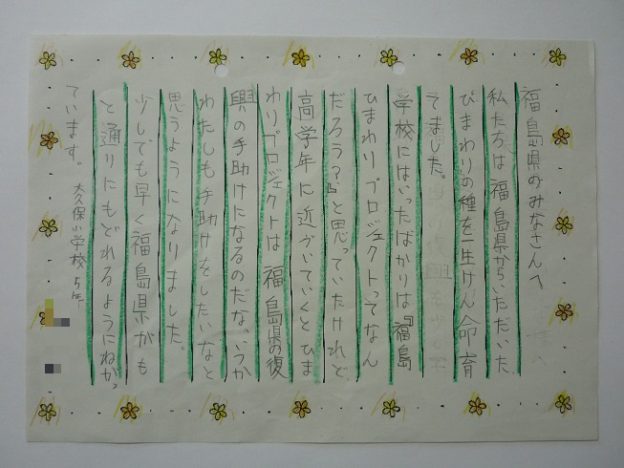 福島県のみなさんへ
私たちは福島県からいただいた
ひまわりの種を一生けん命育
てました。
学校にはいったばかりは『福島
ひまわりプロジェクトってなん
だろう？』と思っていたけれど
高学年に近づいていくとひま
わりプロジェクトは福島県の復
興の手助けになるのだな。いつか
わたしも手助けをしたいなと
思うようになりました。
少しでも早く福島県がも
と通りにもどれるようにねがっ
ています。
大久保小学校5年